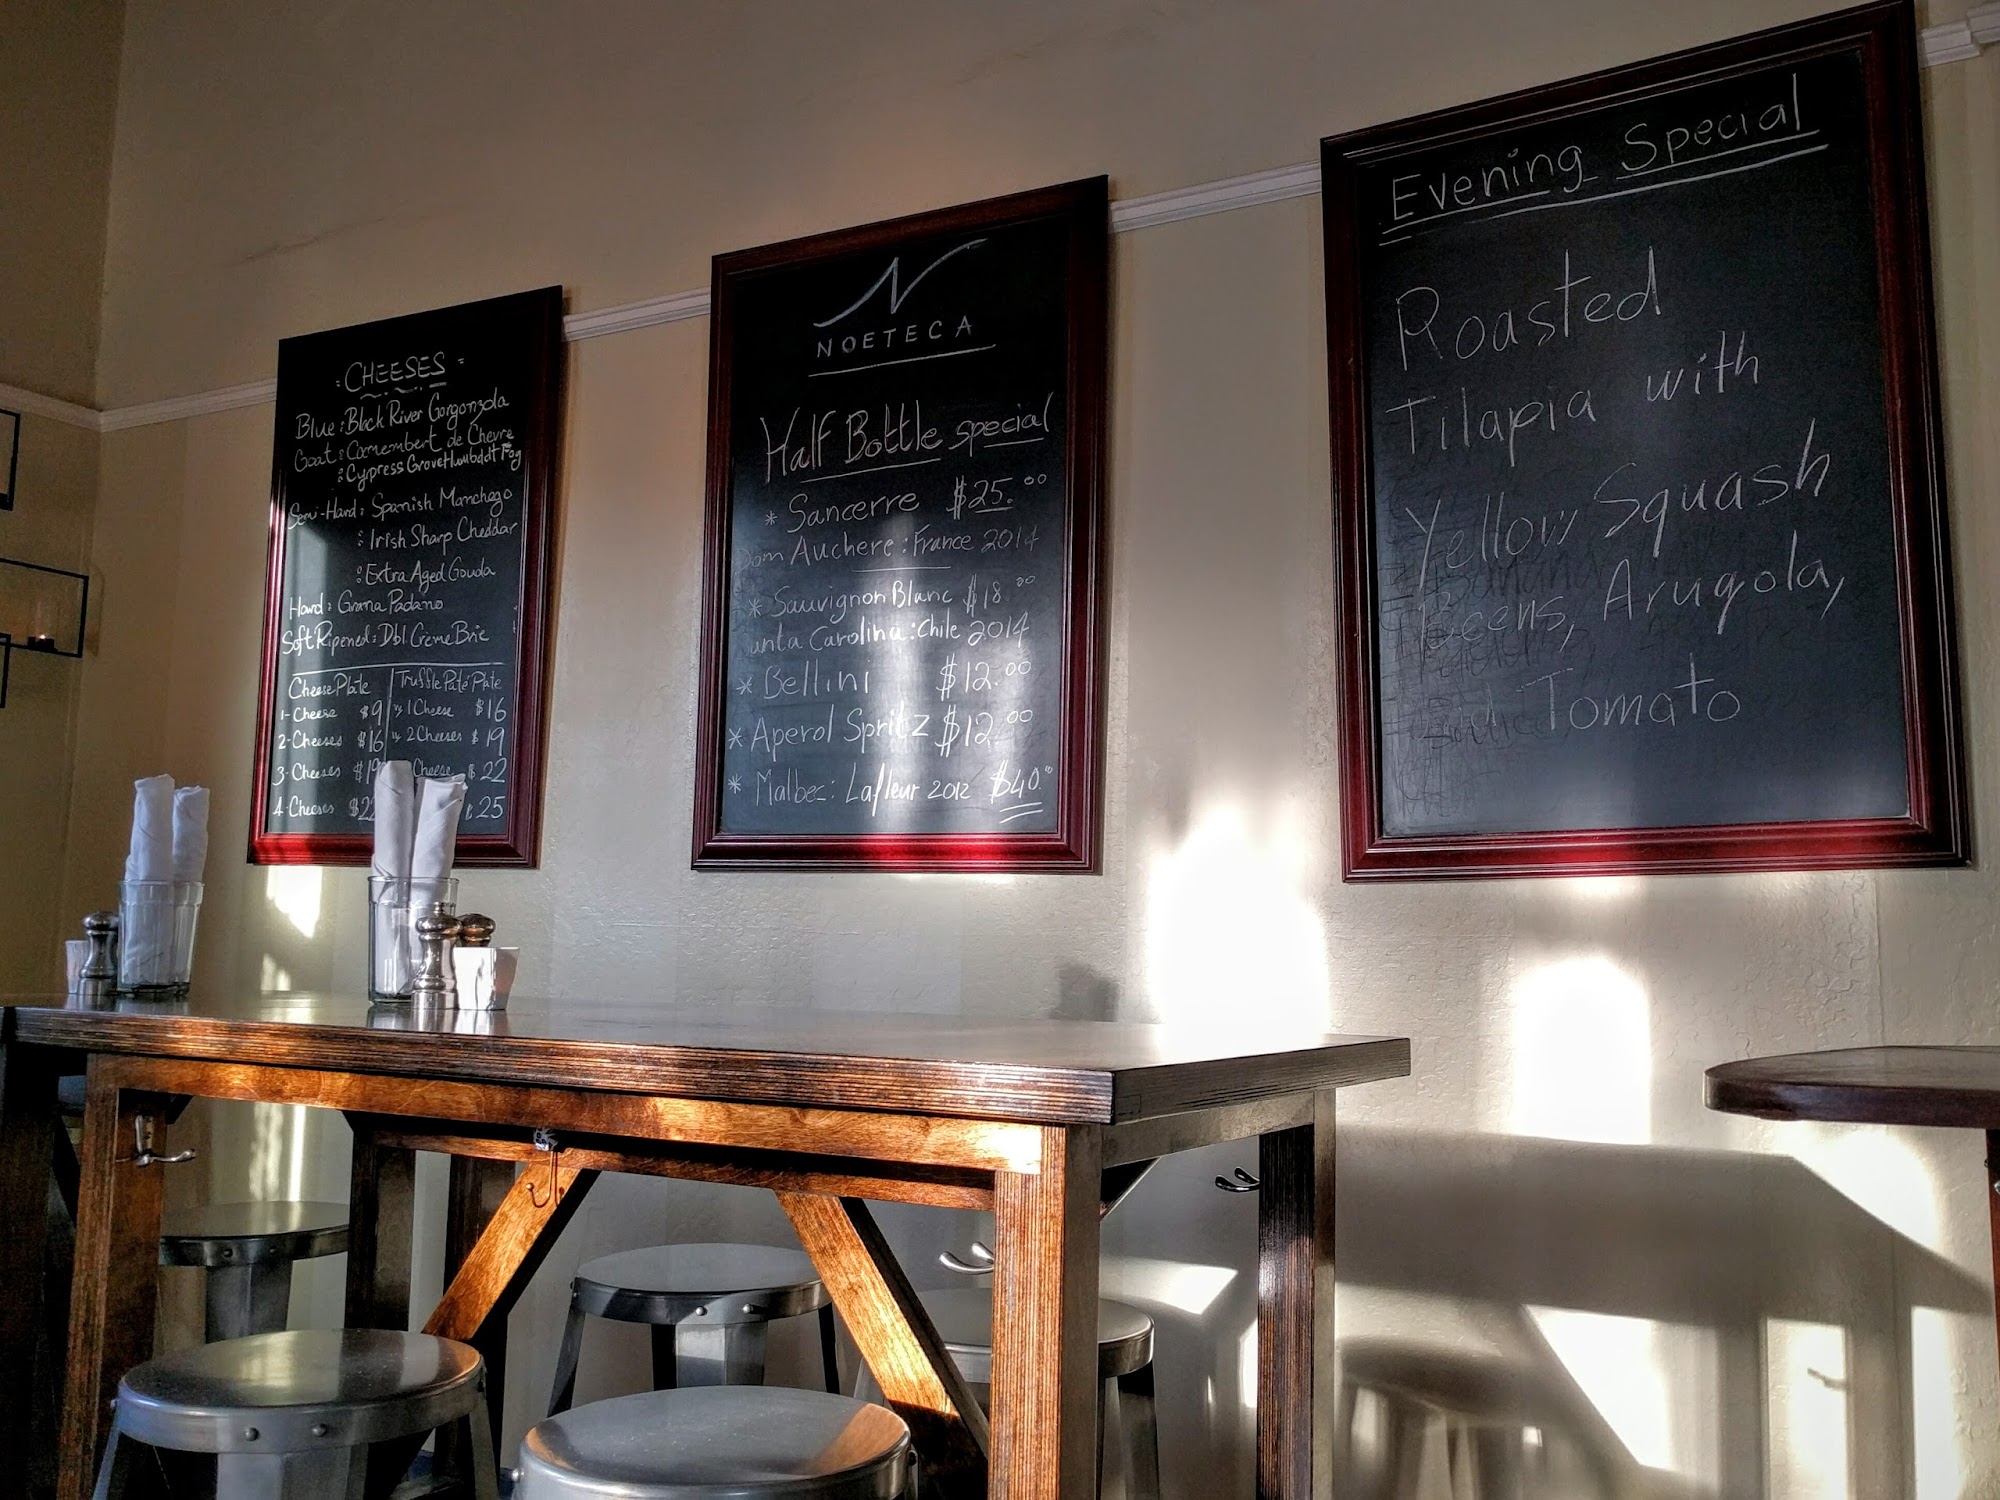 CHEESES
Blue: Black River Gorgonzola
Goat: Camembert de Chevre
: Cypress Grove Humboldt Fog
Semi-Hard: Spanish Manchego
: Irish Sharp Cheddar
: Extra Aged Gouda
Hard: Grana Padano
Soft Ripened: Dbl Creme Brie
Cheese Plate
1-Cheese $9
2-Cheeses $16
3-Cheeses
4-Cheeses
Truffle Paté Plate
w/ 1 Cheese $16
w/ 2 Cheeses $19
Cheese $22
$25
N
NOETECA
Half Bottle special
* Sancerre $25.00
Dom Auchere: France 2014
* Sauvignon Blanc $18.00
Carolina: Chile 2014
* Bellini $12.00
* Aperol Spritz $12.00
* Malbec: Lafleur 2012 $40.00
Evening Special
Roasted
Tilapia with
Yellow Squash
Arugola,
Tomato